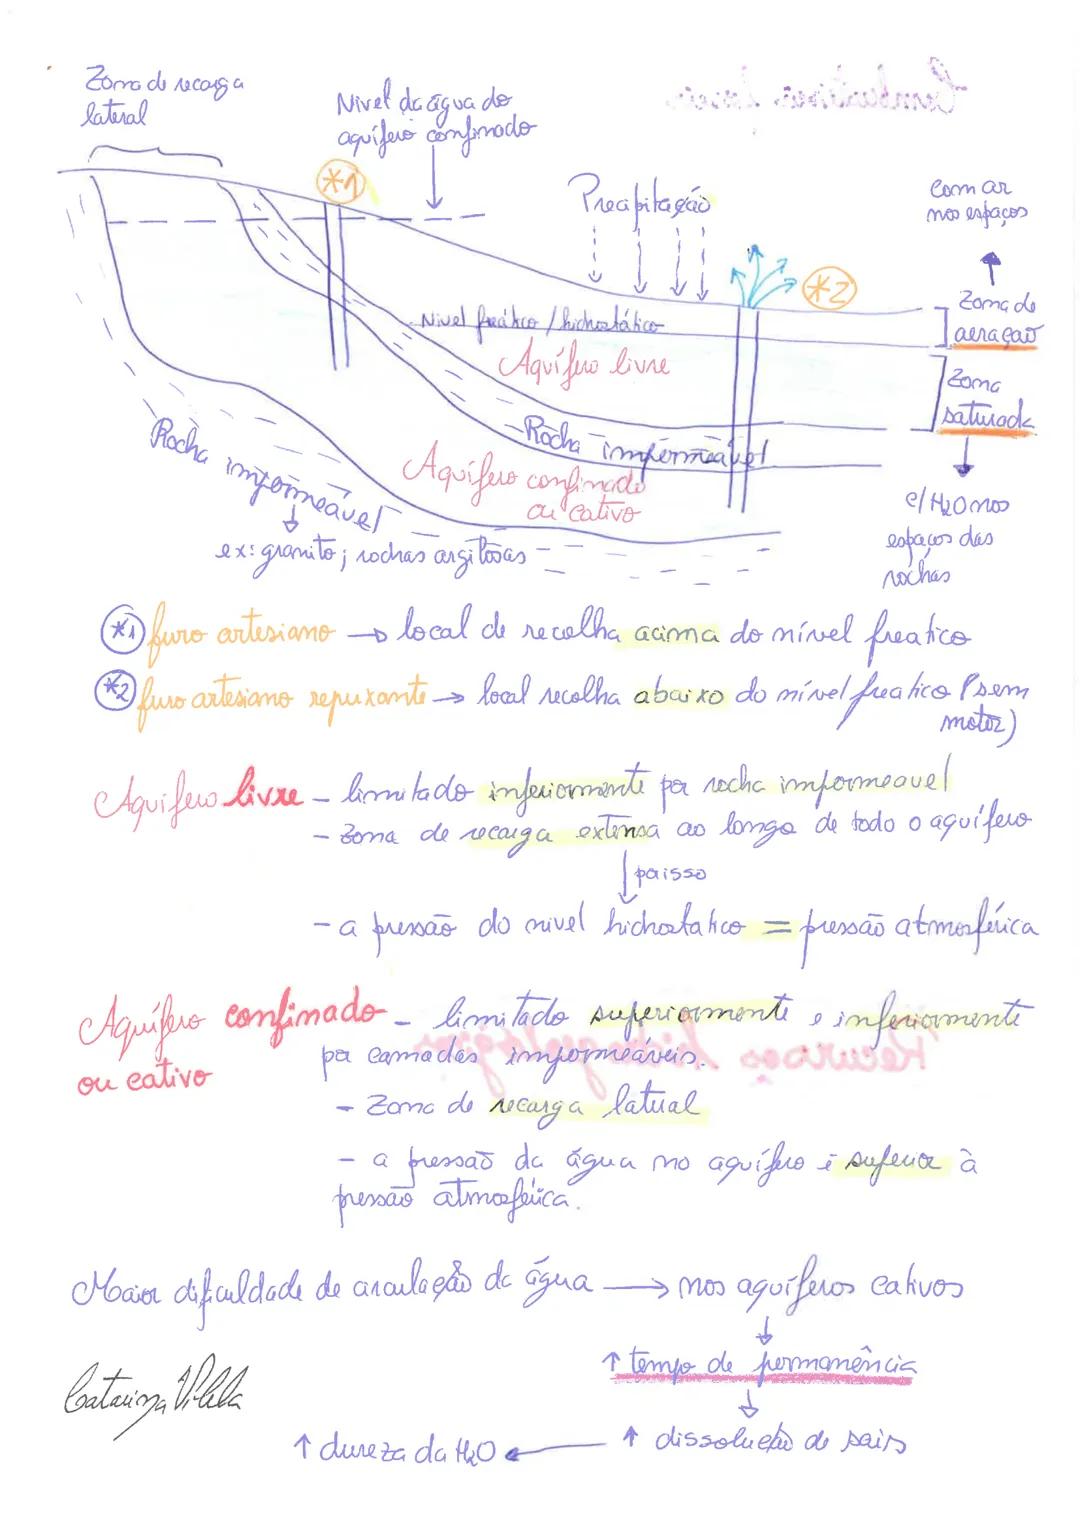 Zona de recarga
lateral
Nível da água do
aquífero confinado
*1
Precipitação
*2
Com ar
nos espaços
Zona de
aeração
Nivel freático / hidrostático
Aquífero livre
Zona
saturada
Rocha impermeável
Rocha impermeável
Aquífero confinado
ou cativo
c/ H2O nos
espaços das
rochas
ex: granito; rochas argilosas
*1 furo artesiano → local de recolha acima do nível freatico
*2 furo artesiano repuxante → local recolha abaixo do nível freatico (sem
motor)
Aquífero livre - limitado inferiormente por rocha impermeavel
- zona de recarga extensa ao longo de todo o aquífero
↓ por isso
- a pressão do nivel hidrostatico = pressão atmosférica
Aquífero confinado - limitado superiormente e inferiormente
ou cativo
por camadas impermeáveis.
- Zona de recarga lateral
- a pressão da água no aquífero é superior à
pressão atmosférica.
Maior dificuldade de circulação da água → nos aquíferos cativos
↑ tempo de permanência
Catarina Vilela
↑ dissolução de sais
↑ dureza da H2O
Combustíveis fósseis
Recursos hidrogeológicos